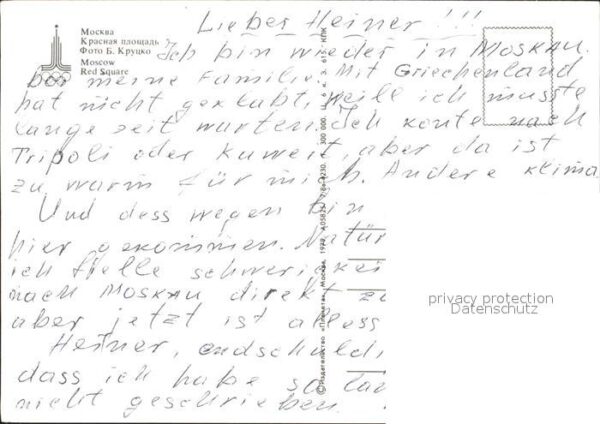 Москва
Красная площадь
Фото Б. Круцко
Moscow
Red Square
Lieber Heiner!!!
Ich bin wieder in MOSKAU.
bei meine Familie. Mit Griechenland
hat nicht geklabt, weile ich musste
lange zeit warten. Ich konte nach
Tripoli oder Kuweit, aber da ist
zu warm für mich. Andere klima
Und dess wegen bin
hier gekommen. Natür
ich fielle schwerickei
nach MOSKAU direkt zu
aber jetzt ist alless
Heiner, endschuldi
dass ich habe so lan
nicht geschrieben.
© Издательство «Планета», Москва, 1977.
300 000. Ц. 6 к. З. 615. КПК
privacy protection
Datenschutz